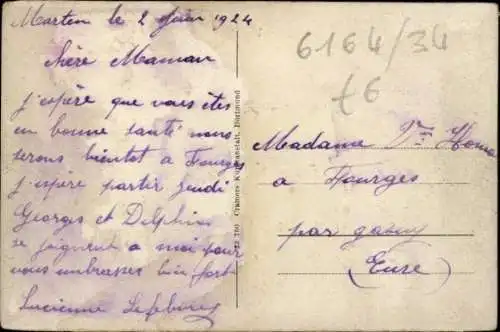 Marten le 2 Juin 1924
Chère Maman
j'espère que vous êtes
en bonne santé nous
serons bientot a Fourges
j'espère partir jeudi
Georges et Delphine
se joignent a moi pour
vous embrasses bien fort
Lucienne Lefebvre
22 780 Cramers Kunstanstalt, Dortmund
6164/34
£6
Madame Vve
a Fourges
par gasny
(Eure)